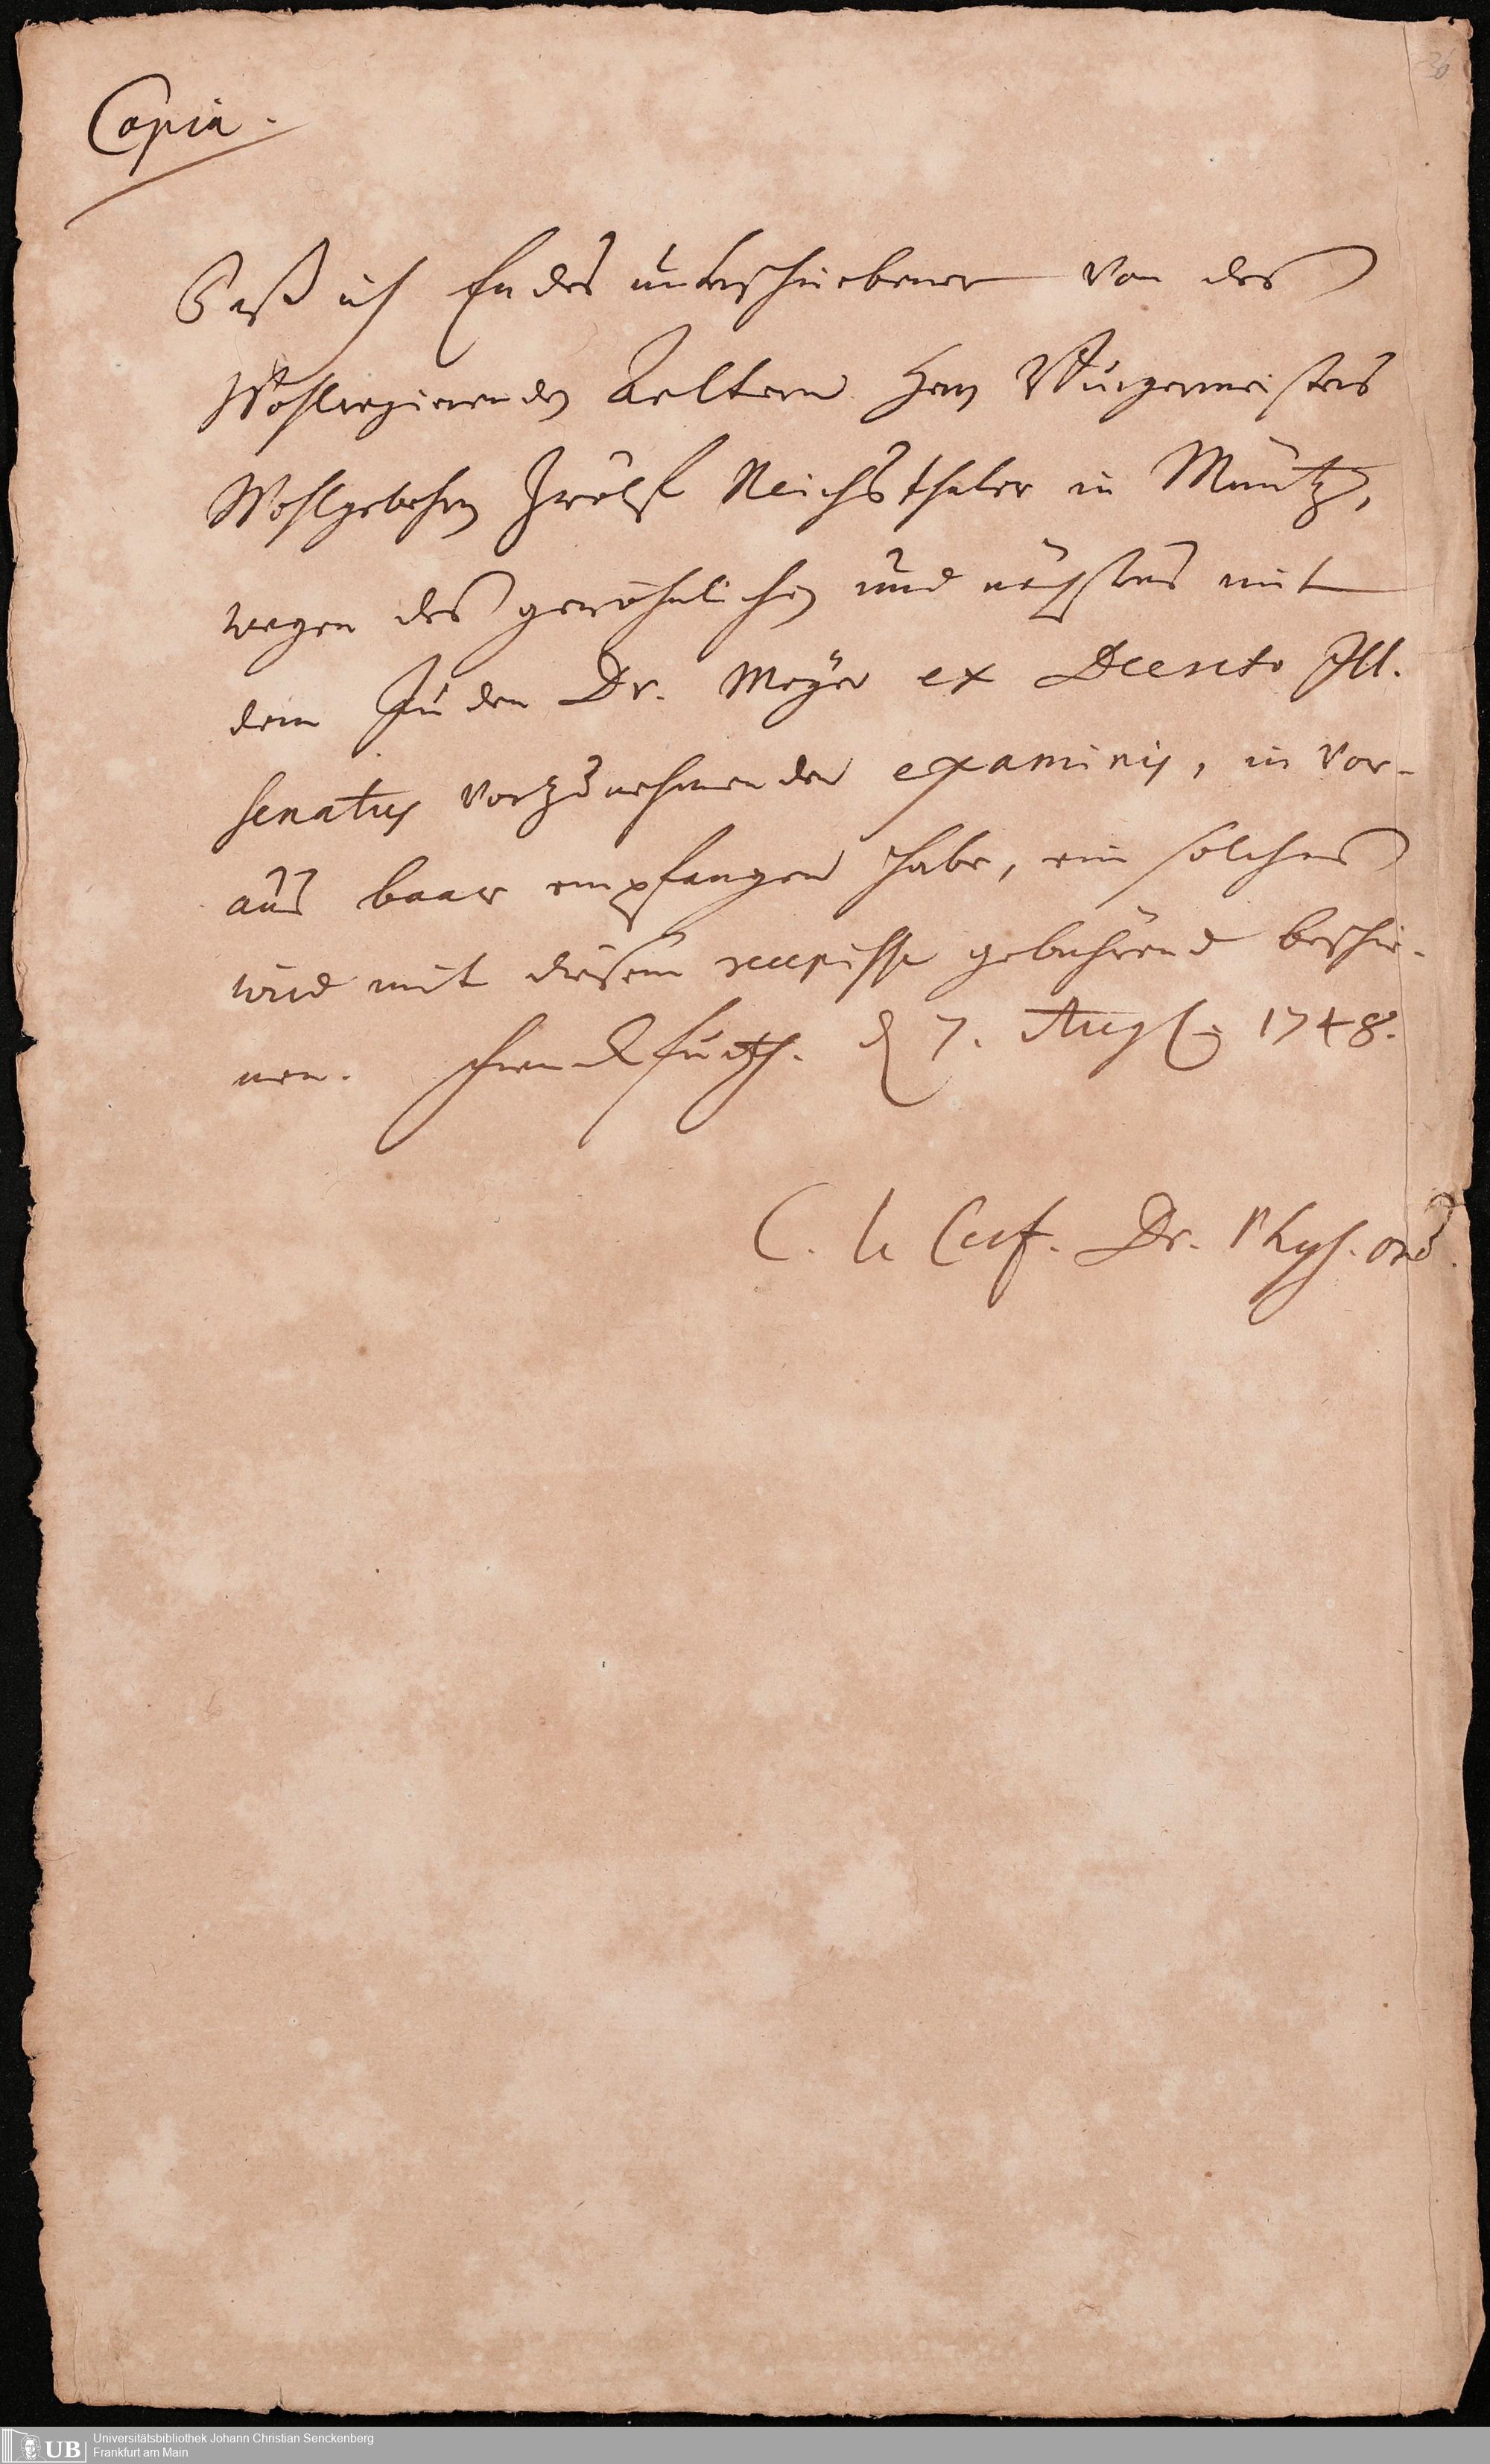 36
Copia.
Daß ich Endes unterschriebener von des
Wohlregierenden Aeltern Herrn Burgermeisters
Wohlgebohrn Zwölf Reichsthaler in Müntz,
wegen des gewöhnlichen und nächstens mit
dem Juden Dr. Meyer ex Decreto Ill.
Senatus vorzunehmenden examinis, in vor-
aus baar empfangen habe, ein solches
wird mit diesem recepisse gebührend beschie-
nen. Franckfurth. d 7. Aug 1748.
C. le Cerf. Dr. Phys. ord.
UB
Universitätsbibliothek Johann Christian Senckenberg
Frankfurt am Main